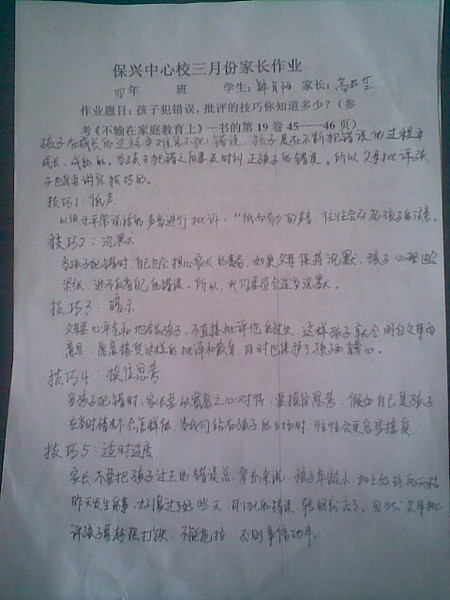 保兴中心校三月份家长作业
四年 班 学生: 郭 阳 家长: 高 芝
作业题目: 孩子犯错误, 批评的技巧你知道多少? (参
考《不输在家庭教育上》一书的第19卷45——46页)
孩子在成长的过程中难免不犯错误, 孩子是在不断犯错误的过程中
成长, 成熟的, 当孩子犯错之后要及时纠正孩子的错误。所以父母批评孩
子也是有讲究技巧的。
技巧1: 低声
以低于平常说话的声音进行批评, "低而有力"的声音, 往往会引起孩子的注意。
技巧2: 沉默
当孩子犯错时, 自己也会担心家长的责备, 如果父母保持沉默, 孩子心理
紧张, 进而反省自己的错误。所以, 我们要学会适当沉默。
技巧3: 暗示
父母要心平气和地启发孩子, 不直接批评他的过失, 这样孩子就会明白父母的
意思, 愿意接受这样的批评和教育, 同时也保护了孩子的自尊心。
技巧4: 换位思考
当孩子犯错时, 家长要以宽容之心对待, 要换位思考, 假如自己是孩子
在当时情 下会怎样做, 当我们站在孩子的 时, 往往会更容易接受。
技巧5: 适时适度
家长不要把孩子过去的错误总拿出来说, 孩子年龄小,
昨天发生的事, , 刚犯的错误, 转眼就忘了。因此, 父母批
评孩子要趁热打铁, 不能拖拉, 否则事倍功半。